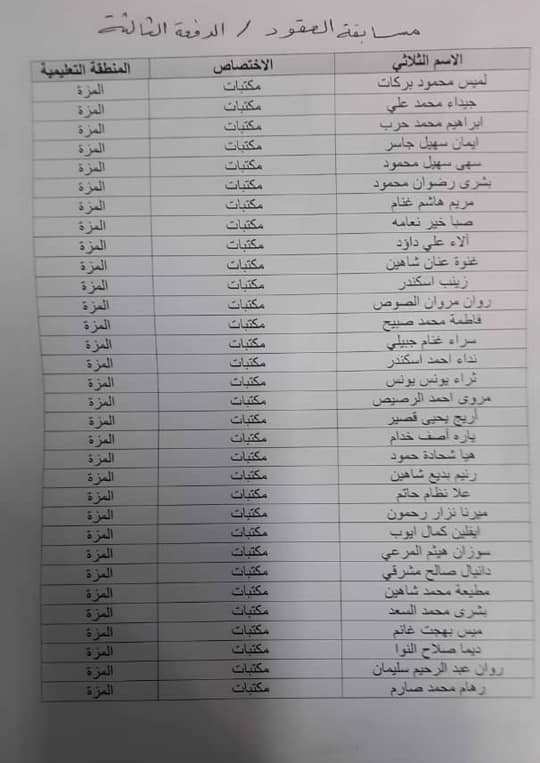 مسابقة العقود / الدفعة الثالثة
الاسم الثلاثي الاختصاص المنطقة التعليمية
لميس محمود بركات مكتبات المزة
جيداء محمد علي مكتبات المزة
ابراهيم محمد حرب مكتبات المزة
ايمان سهيل جاسر مكتبات المزة
سهى سهيل محمود مكتبات المزة
بشرى رضوان محمود مكتبات المزة
مريم هاشم غنام مكتبات المزة
صبا خير نعامه مكتبات المزة
آلاء علي داؤد مكتبات المزة
غنوة عنان شاهين مكتبات المزة
زينب اسكندر مكتبات المزة
روان مروان الصوص مكتبات المزة
فاطمة محمد صبيح مكتبات المزة
سراء غنام جبيلي مكتبات المزة
نداء احمد اسكندر مكتبات المزة
ثراء يونس يونس مكتبات المزة
مروى احمد الرصيص مكتبات المزة
أريج يحيى قصير مكتبات المزة
ياره آصف خدام مكتبات المزة
هيا شحادة حمود مكتبات المزة
رنيم بديع شاهين مكتبات المزة
علا نظام حاتم مكتبات المزة
ميرنا نزار رحمون مكتبات المزة
ايفلين كمال ايوب مكتبات المزة
سوزان هيثم المرعي مكتبات المزة
دانيال صالح مشرقي مكتبات المزة
مطيعة محمد شاهين مكتبات المزة
بشرى محمد السعد مكتبات المزة
ميس بهجت غانم مكتبات المزة
ديما صلاح النوا مكتبات المزة
روان عبد الرحيم سليمان مكتبات المزة
رهام محمد صارم مكتبات المزة